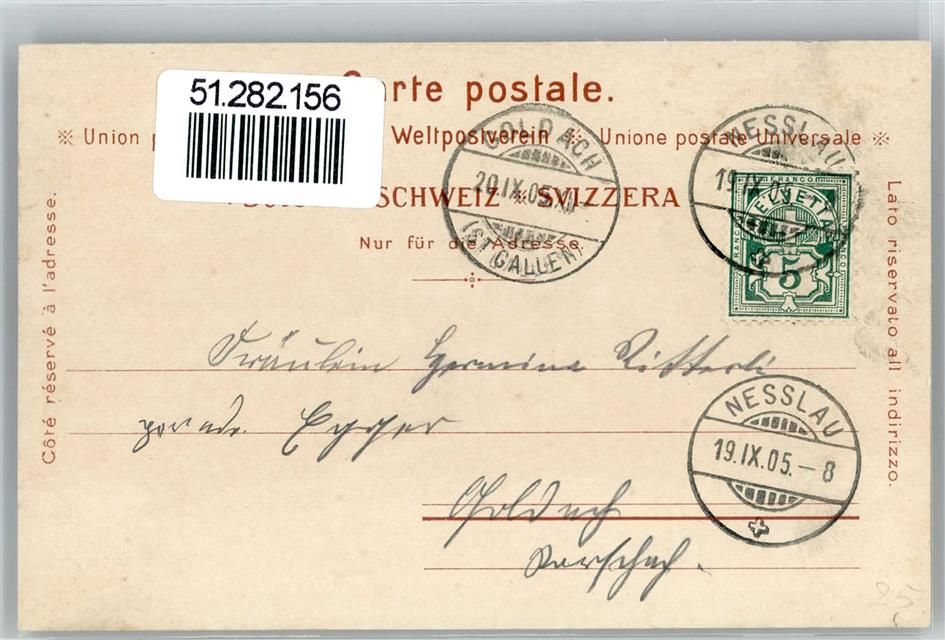 51.282.156
arte postale.
Union p Weltpostverein Unione postale Universale
SCHWEIZ SVIZZERA
Nur für die Adresse.
Côté réservé à l'adresse.
Lato riservato all indirizzo.
GOLDACH
20.IX.05.
(ST GALLEN)
NESSLAU
19.IX.05.
FRANCO
HELVETIA
5
Fräulein Hermina Ritterli
Egger
NESSLAU
19.IX.05.–8
Goldach
Rorschach.
25.